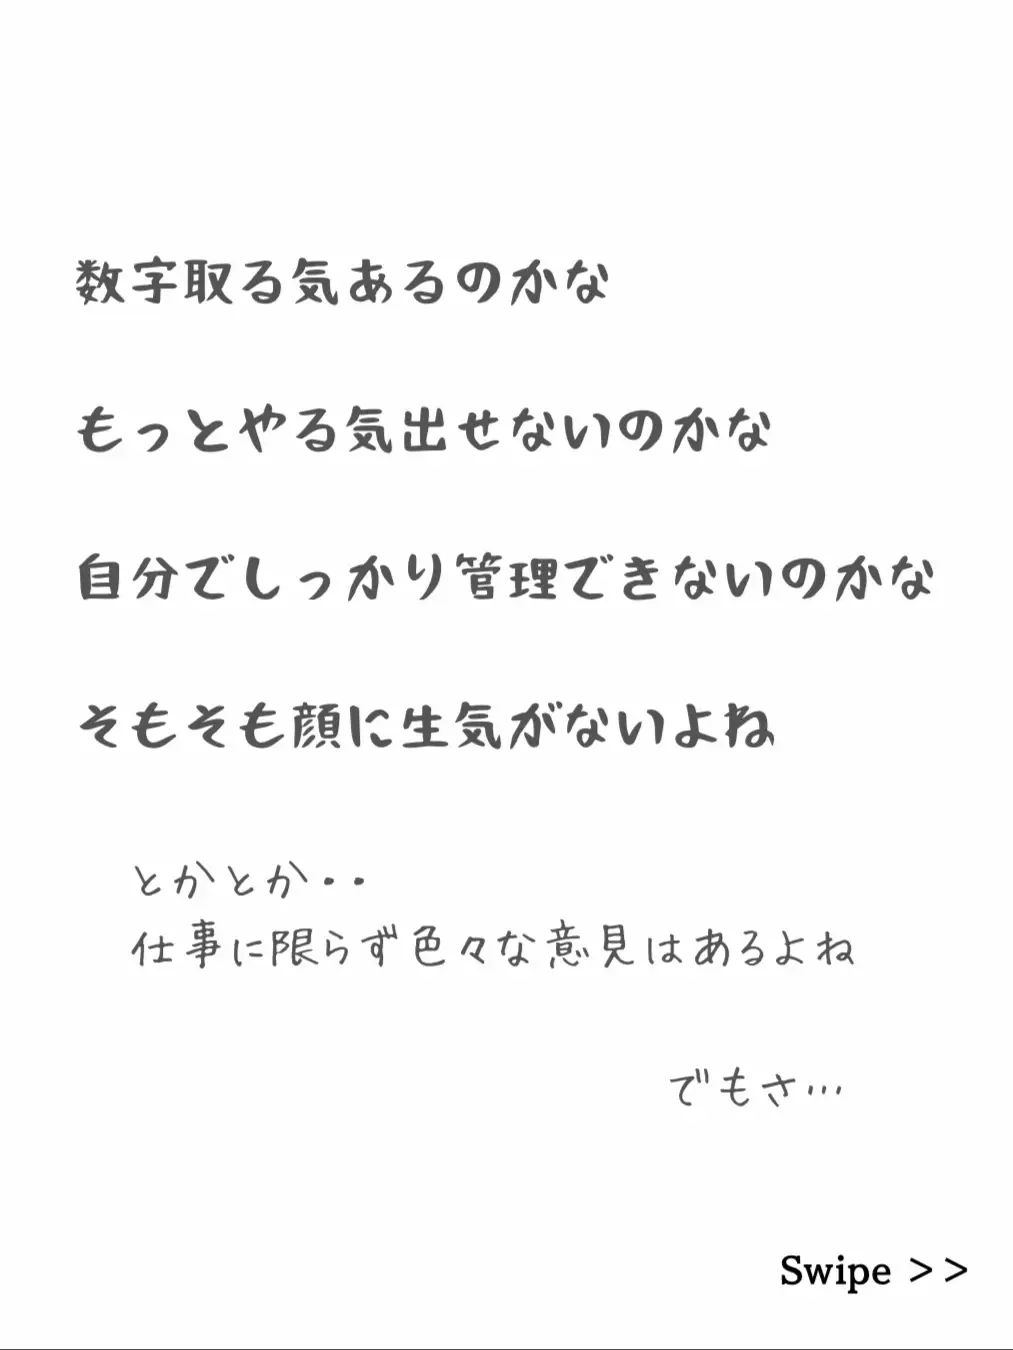 数字取る気あるのかな
もっとやる気出せないのかな
自分でしっかり管理できないのかな
そもそも顔に生気がないよね
とかとか・・
仕事に限らず色々な意見はあるよね
でもさ…
Swipe >>